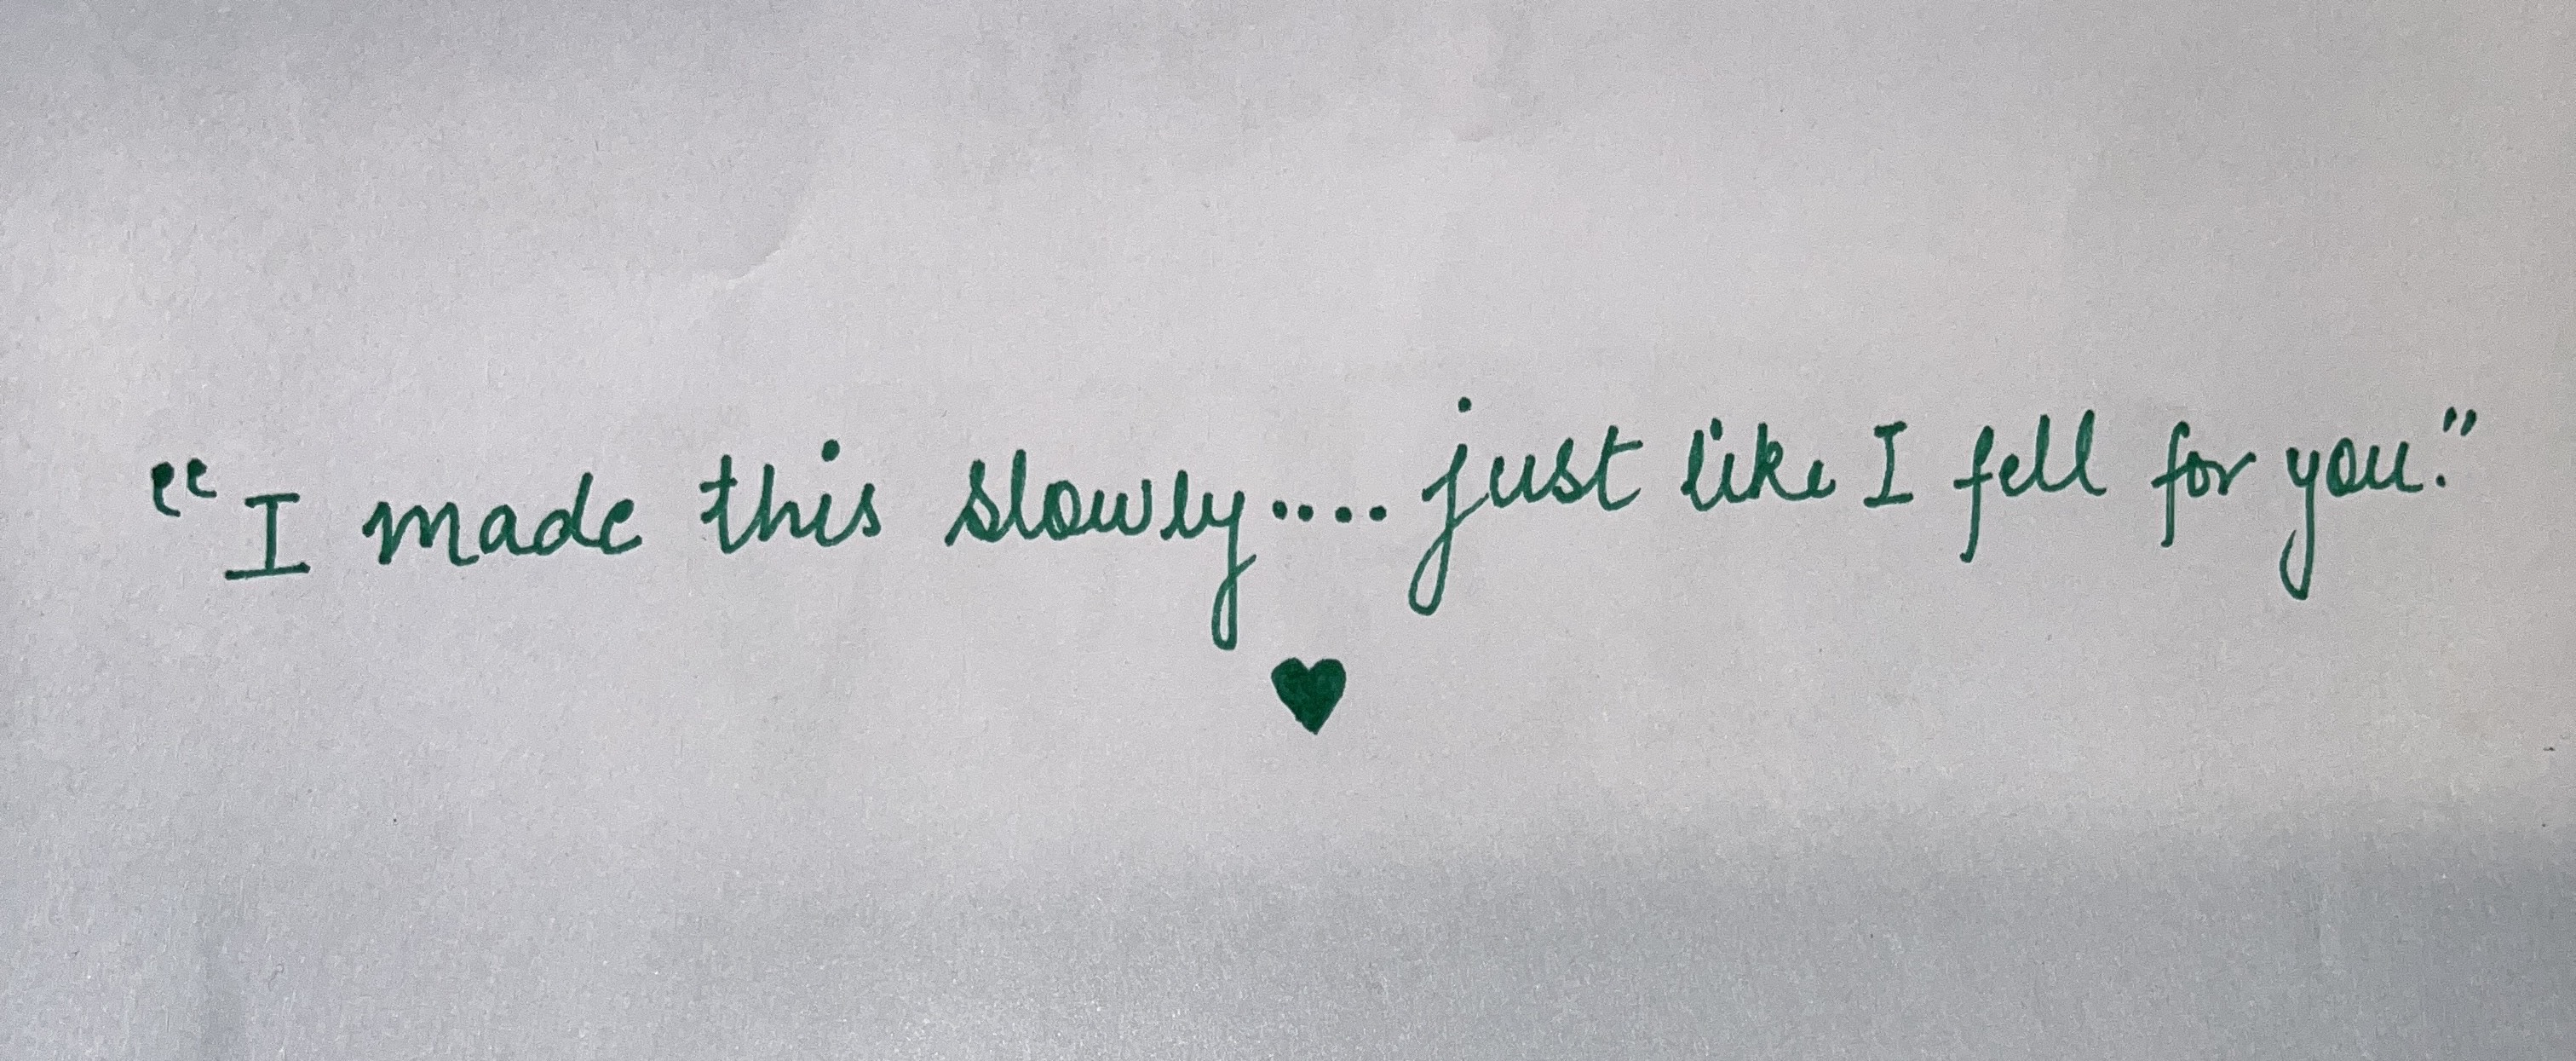 "I made this slowly.... just like I fell for you."